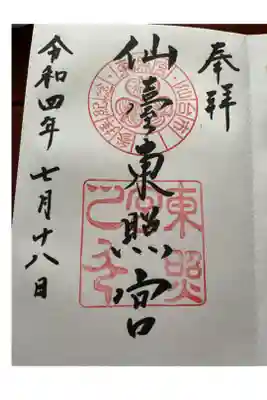 奉拝
仙臺東照宮
令和四年 七月十八日
東照宮